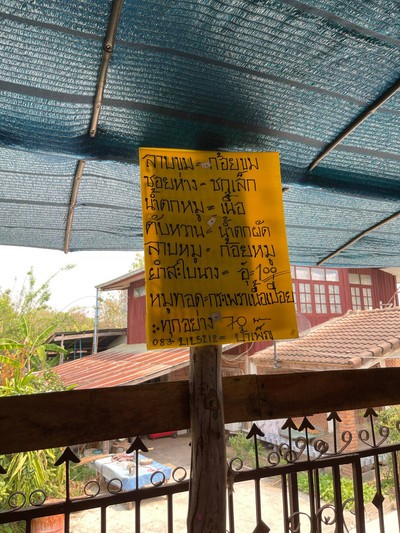 ลาบขม = ก้อยขม
ซอยห่าง - ซกเล็ก
น้ำตกหมู = เนื้อ
ตับหวาน = น้ำตกผัด
ลาบหมู - ก้อยหมู
ยำสะใบนาง = อุ๊ = 100
หมูทอด = กระเพาะเนื้อเปื่อย
: ทุกอย่าง 70
083-2125212 =